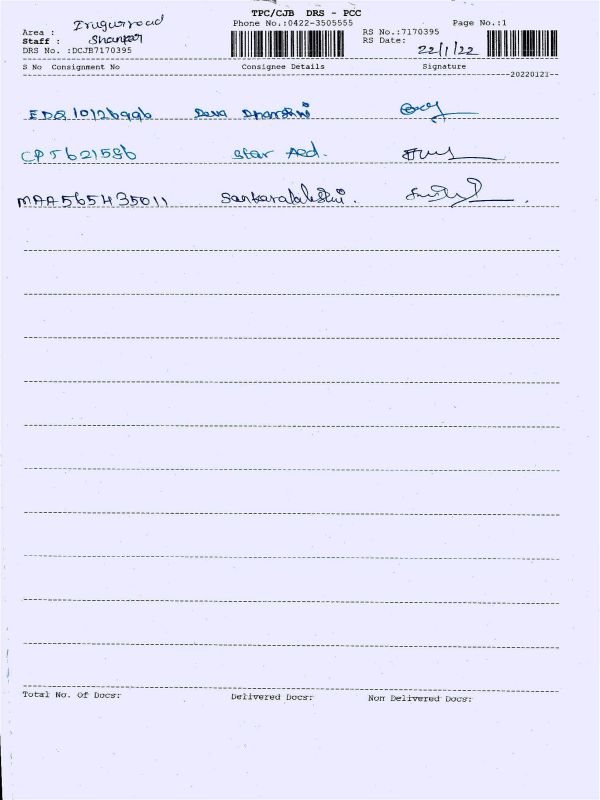 TPC/CJB DRS - PCC
Phone No.:0422-3505555 Page No.:1
Area : Irugurroad
RS No.:7170395
Staff : Shankar
RS Date: 22/1/22
DRS No. :DCJB7170395
S No Consignment No Consignee Details Signature
--20220121--
Deva Dharshini
CPJ621586 Star Aed.
MAA565435011
Total No. Of Docs: Delivered Docs: Non Delivered Docs: